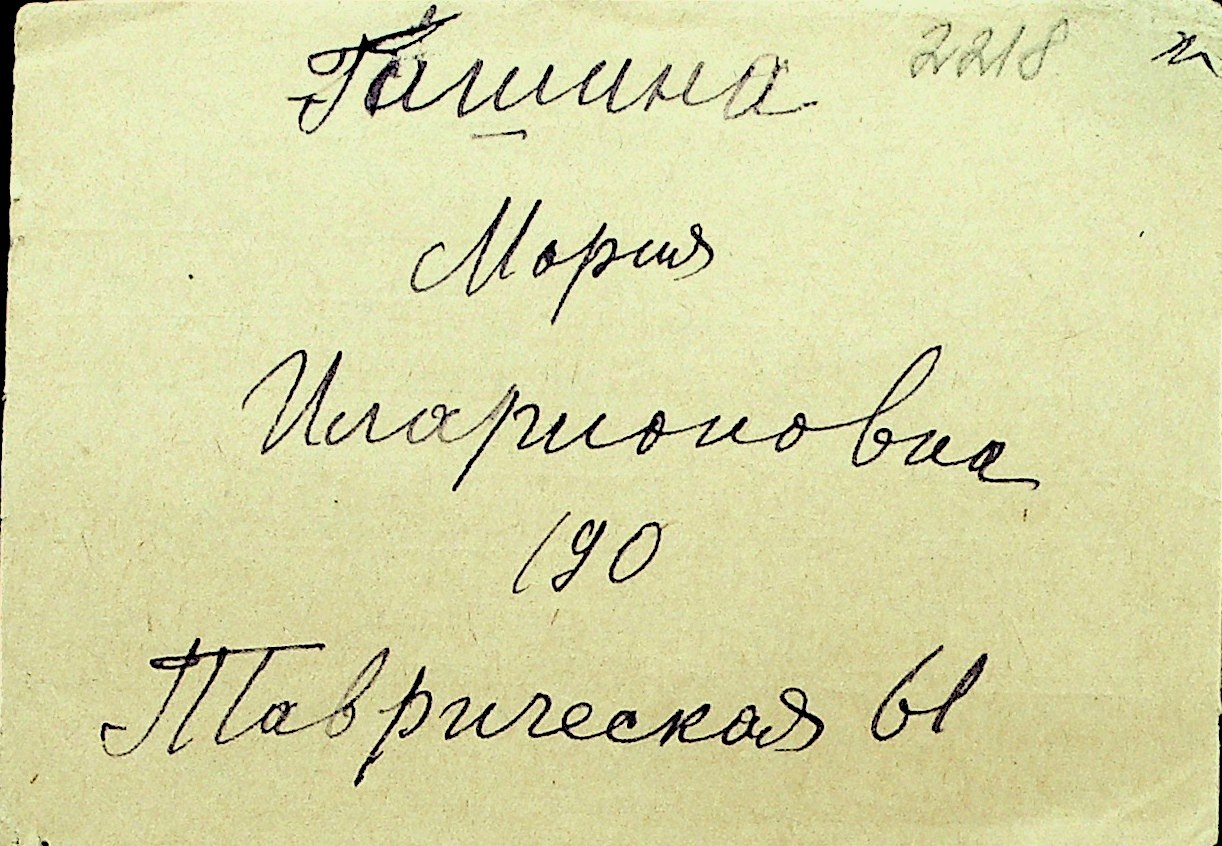 Гашина 2218
Мария
Иларионовна
190
Таврическая 61